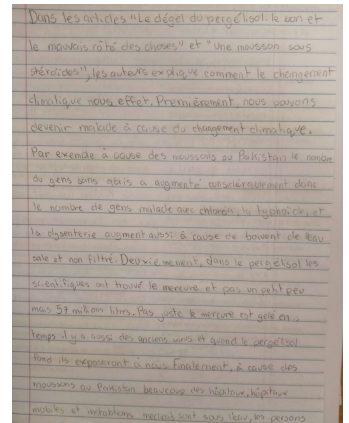 Dans les articles "Le dégel du pergélisol: le bon et
le mauvais côté des choses" et "Une mousson sous
stéroïdes", les auteurs explique comment le changement
climatique nous effet. Premièrement, nous pouvons
devenir malade à cause du changement climatique.
Par exemple à cause des moussons au Pakistan le nombre
du gens sans abris a augmenté considérablement donc
le nombre de gens malade avec choléra, la typhoïde, et
la dysenterie augment aussi à cause de boivent de l'eau
sale et non filtré. Deuxièmement, dans le pergélisol les
scientifiques ont trouvé le mercure et pas un petit peu
mais 57 millions litres. Pas juste le mercure est gelé en
temps il y a aussi des anciens virus et quand le pergélisol
fond ils exposeront à nous. Finalement, à cause des
moussons au Pakistan beaucoup des hôpitaux, hôpitaux
mobiles et sont sous l'eau, les persons